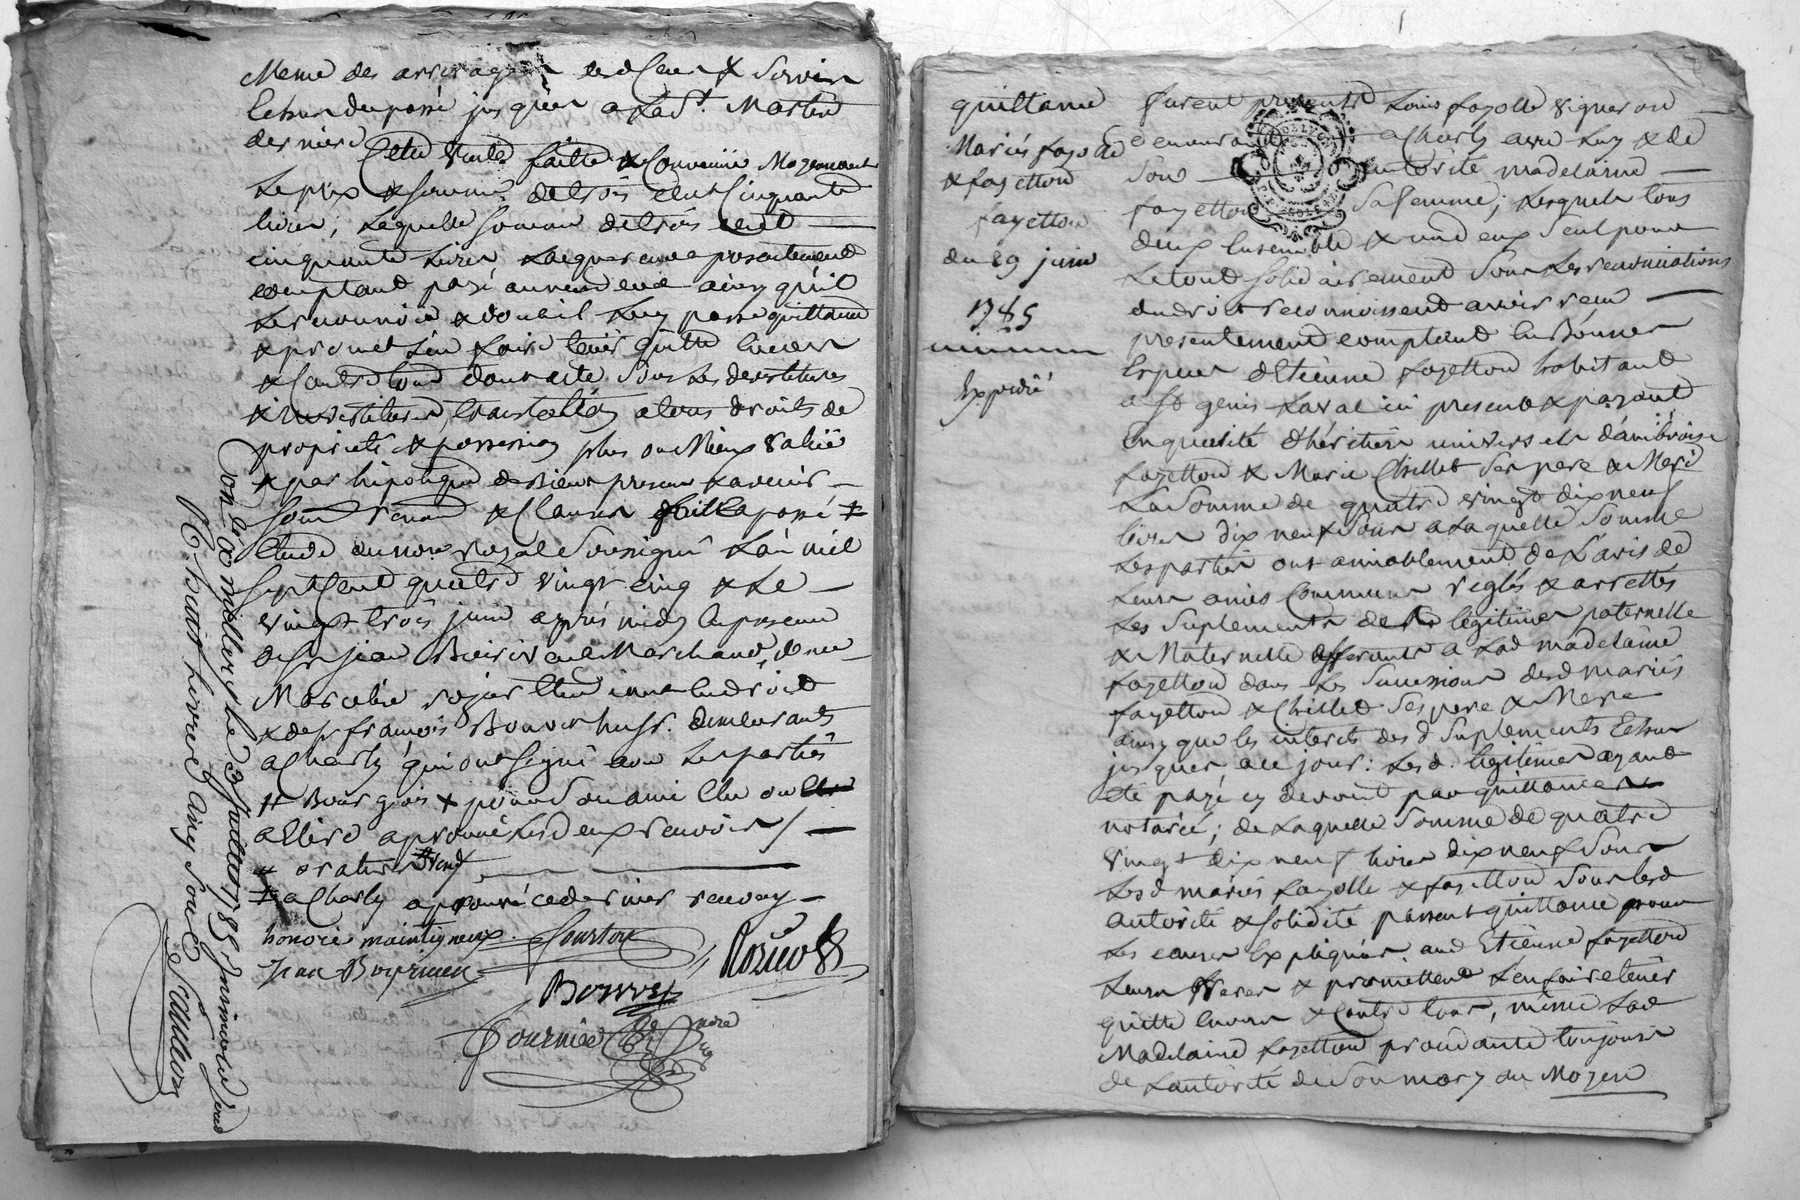 Meme des arrerages desd Cens & Servis
Echus du passé jusques a la St. Martin
derniere
Cette vente faitte & Convenüe Moyennant
Le prix & somme de trois Cent Cinquante
livres, Laquelle somme de trois Cent
cinquante Livres presentement
comptant payé au vendeur ainsy qu'il
Le reconnoit & dont il Luy passe quittance
& promet L'en faire tenir quitte Envers
& Contre tous dont acte Sous Les devestitures
& investitures, translation a tous droits de
proprieté & possession plus ou Mieux valüe
& par hipoteque des Biens presens & avenir
Soum. renon. & Clauses fait & passé #
Etude du nore Royal Soussigné L'an mil
Sept Cent quatre vingt cinq & Le
vingt trois juin après midy En presence
de Sr jean Marchand, de
& de Sr françois Bonvos demeurants
a Charly qui ont Signé avec Les parties
# Bourgeois & pour Son ami Elu ou
a Elire aprouvé Les deux renvois /
# a Charly aprouvé ce dernier renvoy
honoré maintigneux
Courtois
Rozier
Jean Boirivent
Bonvos
Fournier
nore
Con.lé a millery Le 3 juillet 1785
R. huit Livres ainq sou
quittance
Mariés fayolle
& fayettou
fayettou
du 29 juin
1785
Expedié
furent presents Louis fayolle vigneron
demeurant a Charly avec Luy & de
Son autorité madelaine
fayettou Sa femme; Lesquels tous
deux Ensemble & un d'eux Seul pour
Le tout Solidairement Sous Les renonciations
du droit reconnoissent avoir reçu
presentement comptant En Bonnes
Especes d'Etienne fayettou habitant
a St genis Laval ici present & payant
En qualité d'héritier universel d'ambroise
fayettou & Marie Chillet Ses pere & Mere
La Somme de quatre vingt dix neuf
livres dix neuf Sous a Laquelle Somme
Les parties ont amiablement de L'avis de
Leurs amis Communs reglés & arrettés
Les Suplements de legitimes paternelle
& Maternelle afferants a Lad madelaine
fayettou dans Les Successions desd mariés
fayettou & Chillet Ses pere & Mere
ainsy que les interets desd Suplements Echus
jusques a ce jour: Lesd. legitimes ayant
été payé cy devant par quittances
notariée; de Laquelle Somme de quatre
vingt dix neuf livres dix neuf Sous
Lesd mariés fayolle & fayettou Sous lesd
autorité & Solidité passent quittance pour
Les causes Expliquées aud Etienne fayettou
Leur frere & promettent L'en faire tenir
quitte Envers & Contre tous, même Lad
Madelaine fayettou procedante toujours
de L'autorité de Son mary au Moyen